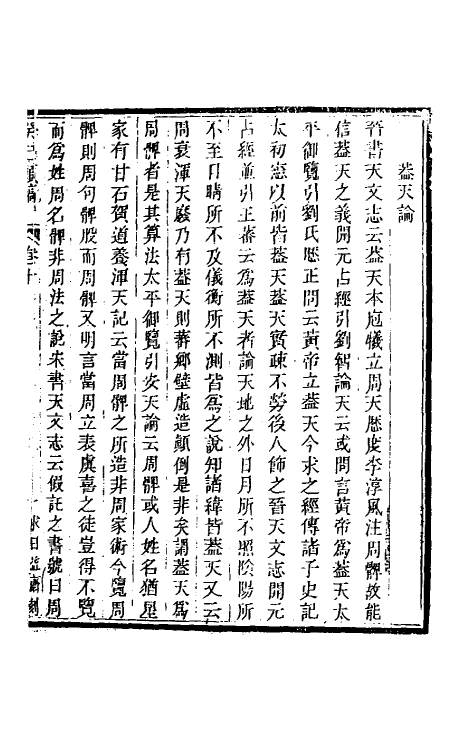 蓋天論
晉書天文志云蓋天本庖犧立周天厤度李淳風注周髀故能
信蓋天之義開元占經引劉智論天云或問言黃帝爲蓋天太
平御覽引劉氏厤正問云黃帝立蓋天今求之經傳諸子史記
太初憲以前皆蓋天蓋天實疎不勞後人飾之晉天文志開元
占經並引王蕃云爲蓋天者論天地之外日月所不照陰陽所
不至日睛所不及儀衡所不測皆爲之說知諸緯皆蓋天又云
周衰渾天廢乃有蓋天則蕃鄉壁虛造顛倒是非矣謂蓋天爲
周髀者是其算法太平御覽引安天論云周髀或人姓名猶星
家有甘石賀道養渾天記云當周髀之所造非周家術今覽周
髀則周句髀股而周髀又明言當周立表虞喜之徒豈得不覽
而爲姓周名髀非周法之說宋書天文志云假託之書號曰周
癸巳類稿
卷十
一
求日益齋刻